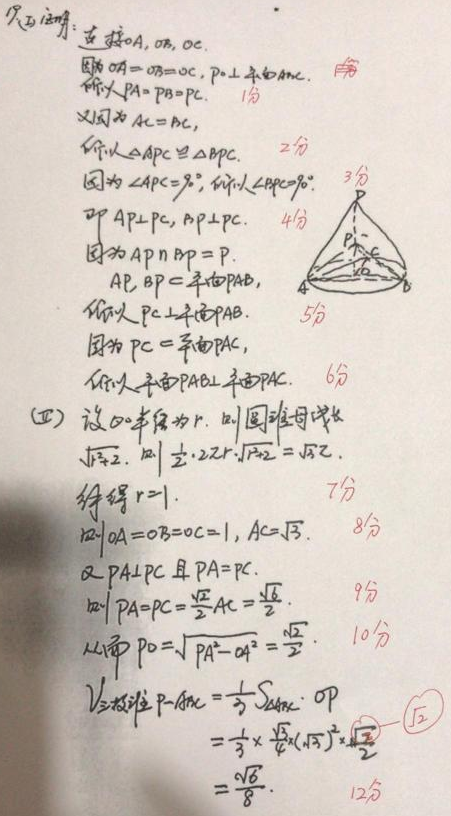 (I) 证明:
连接OA, OB, OC.
因为 OA=OB=OC, PO⊥平面ABC.
所以 PA=PB=PC. 1分
又因为 AC=BC,
所以△APC≌△BPC. 2分
因为 ∠APC=90°, 所以∠BPC=90°. 3分
即 AP⊥PC, BP⊥PC. 4分
因为 AP∩BP=P.
AP, BP⊂平面PAB,
所以 PC⊥平面PAB. 5分
因为 PC⊂平面PAC,
所以平面PAB⊥平面PAC. 6分
D
P
C
A
O
B
(II) 设⊙O半径为r. 则圆锥母线长
√r²+2. 则 1/2·2πr·√r²+2=√3π.
解得 r=1. 7分
则 OA=OB=OC=1, AC=√3. 8分
又 PA⊥PC 且 PA=PC.
则 PA=PC=√2/2 AC=√6/2. 9分
从而 PO=√PA²-OA²=√2/2. 10分
V三棱锥P-ABC=1/3 S△ABC·OP
=1/3×√3/4×(√3)²×√2/2 √2
=√6/8. 12分